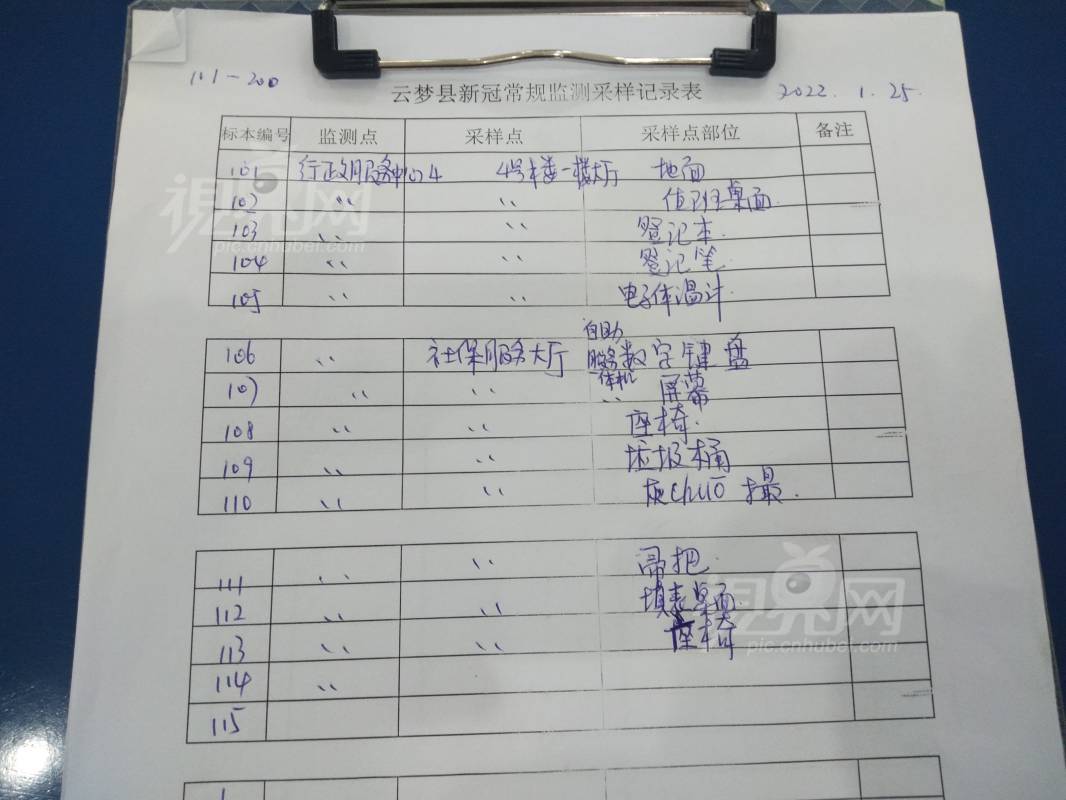 101-200
云梦县新冠常规监测采样记录表 2022.1.25
标本编号 监测点 采样点 采样点部位 备注
101 行政服务中心4 4号楼一楼大厅 地面
102 〃 〃 值班桌面
103 〃 〃 登记本
104 〃 〃 登记笔
105 〃 〃 电子体温计
自助
106 〃 社保服务大厅 服务数字键盘
一体机
107 〃 〃 〃 屏幕
108 〃 〃 座椅
109 〃 〃 垃圾桶
110 〃 〃 灰chuō 撮
111 〃 〃 帚把
112 〃 〃 填表桌面
113 〃 〃 座椅
114 〃
115
視界网
pic.cnhubei.com
視界网
pic.cnhubei.com